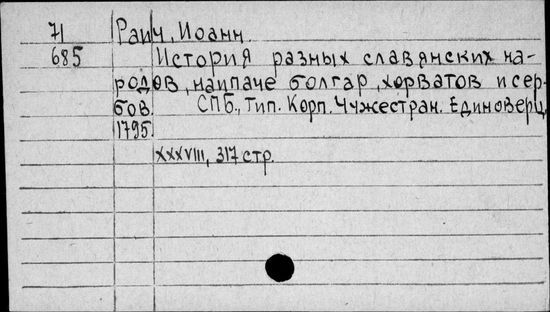 71 Раич, Иоанн.
685 История разных славянских на-
родов, наипаче болгар, хорватов и сер-
бов. СПб., Тип. Корп. Чужестран. Единоверц.
1795
XXXVIII, 317 стр.